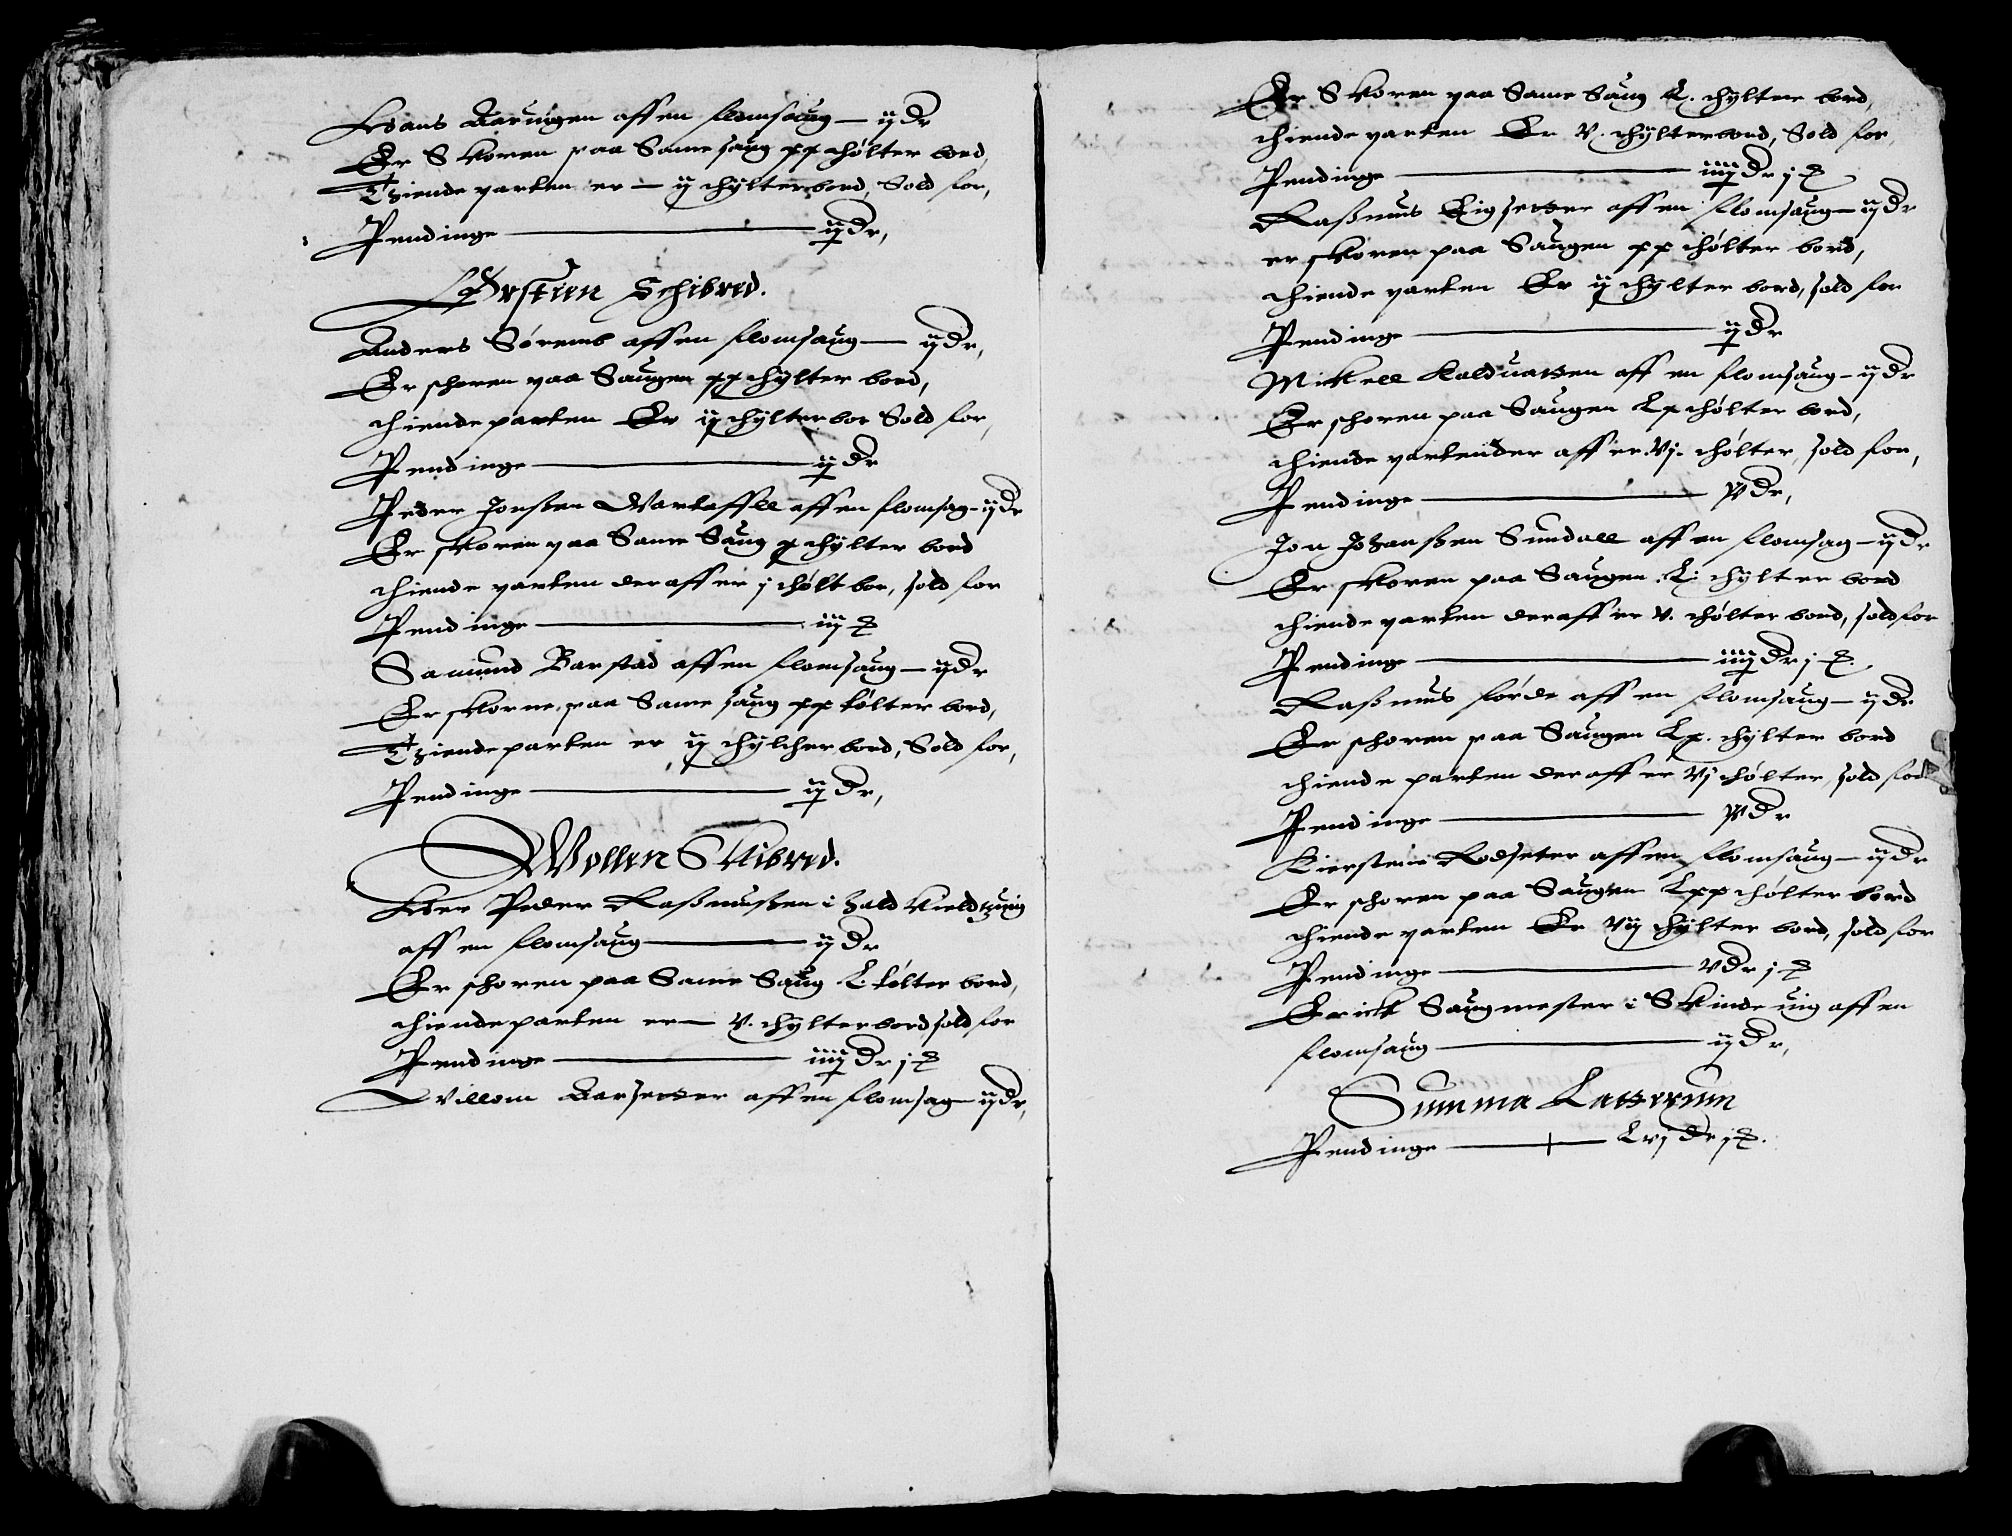 Hans Aaruigen aff en flomsaug — ij dr
Er Skoren paa Same saug xx thølter bord,
Tziende parten er — ij thylter bord, Sold for,
Pendinge — ij dr,
Ørstien Schibred.
Anders Sørensb aff en flomsaug — ij dr,
Er schoren paa Saugen xx thylter bord,
thiende parten Er ij thylter bor Sold for,
Pendinge — ij dr
Peder Jonßen Wartaffle aff en flomsag — ij dr
Er skoren paa Same Saug x thylter bord
thiende parten der aff er j thølt bor, sold for
Pendinge — iij
Samund Barstad aff en flomsaug — ij dr
Er skorne paa Same saug xx tølter bord,
Tziende parten er ij thylther bord, Sold for,
Pendinge — ij dr,
Wollen Skibred.
Her Peder Raßmußen i
aff en flomsaug — ij dr
Er schoren paa Same Saug L tølter bord,
thiende parten er — v. thylter bord sold for
Pendinge — iiij dr j
Willom Aarsetter aff en flomsag — ij dr,
Er Skoren paa Same Saug L. thylter bord,
thiende parten Er v. thylter bord, Sold for,
Pendinge — iiij dr j
Raßmus Eigsetter aff en flomsaug — ij dr
er skoren paa Saugen xx thølter bord,
thiende parten Er ij thylter bord, sold for
Pendinge — ij dr
Mickell Kalduatzen aff en flomsaug — ij dr
Er schoren paa Saugen Lx thølter bord,
thiende parten der aff er vj. thølter, sold for,
Pendinge — dr,
Jon Johanßen Sundall aff en flomsag — ij dr
Er skoren paa Saugen. L: thylter bord
thiende parten der aff er v. thølter bord, sold for
Pendinge — iiij dr j
Raßmus førde aff en flomsaug — ij dr
Er schoren paa Saugen Lx. thylter bord
thiende parten der aff er vj thølter, sold for
Pendinge — dr
Kierstenn Rodseter aff en flomsaug — ij dr
Er schoren paa Saugen Lxx thølter bord
thiende parten Er vij thylter bord, sold for
Pendinge — v dr j
Erick Saugmester i Skinde uig aff en
flomsaug — ij dr,
Summa Latterum
Pendinge — Lvj dr j